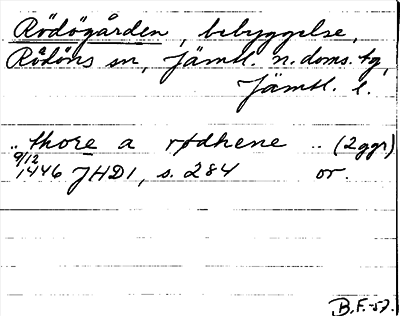 Rödögården, bebyggelse,
Rödöns sn, Jämtl. n. doms. tg,
Jämtl. l.
.. thore a rødhene .. (2ggr)
9/12
1446 JHD1, s. 284 or.
B.F.-57.